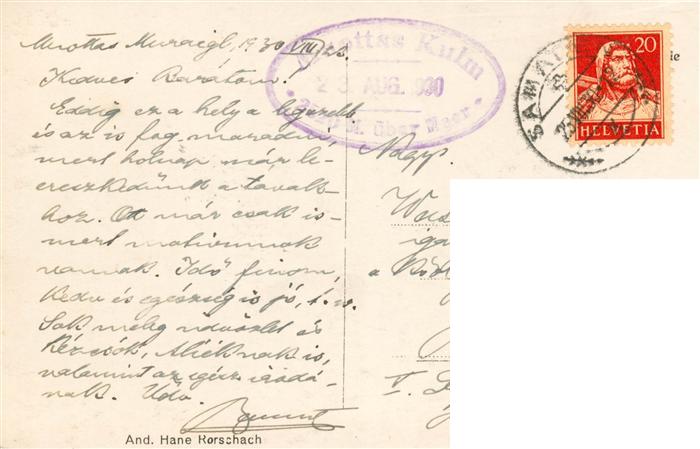 Muottas Muraigl, 1930 VIII/23
Kedves Barátom!
Eddig ez a hely a legszebb
és az is fog maradni,
mert holnap már le-
ereszkedünk a tavak-
hoz. Ott már csak is-
mert motivumok
vannak. Idő finom,
kedv és egészség is jó,
Sok meleg üdvözlet és
kézcsók, Aliéknak is,
valamint az egész irodá-
nak. Üdv.
And. Hane Rorschach
Muottas Kulm
23. AUG. 1930
M. über Meer
SAMA
20
HELVETIA
ie
Nagys.
a
I.